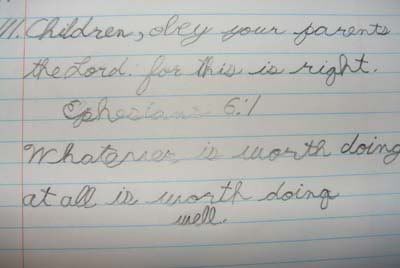 111. Children, obey your parents
the Lord. for this is right.
Ephesians 6:1
Whatever is worth doing
at all is worth doing
well.